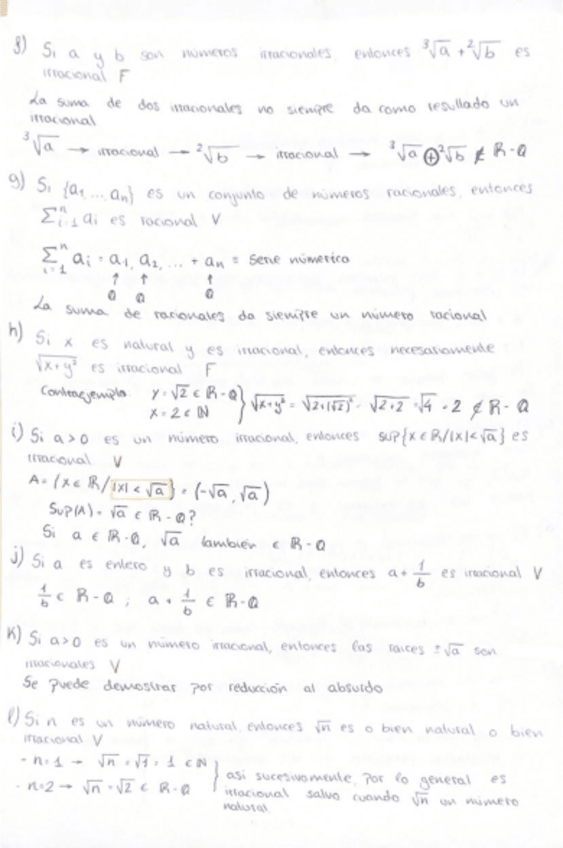 f) Si a y b son números irracionales, entonces ³√a + ²√b es
irracional F
La suma de dos irracionales no siempre da como resultado un
irracional
³√a → irracional → ²√b → irracional → ³√a ⊕ ²√b ∉ ℝ-ℚ
g) Si {a₁ ... aₙ} es un conjunto de números racionales, entonces
∑ⁿᵢ₌₁ aᵢ es racional V
∑ⁿᵢ₌₁ aᵢ = a₁, a₂, ... + aₙ = serie númerica
↑ ↑ ↑
ℚ ℚ ℚ
La suma de racionales da siempre un número racional
h) Si x es natural y es irracional, entonces necesariamente
√x+y² es irracional F
Contraejemplo y = √2 ∈ ℝ-ℚ
x = 2 ∈ ℕ } √x+y² = √2+(√2)² = √2+2 = √4 = 2 ∉ ℝ-ℚ
i) Si a>0 es un número irracional, entonces sup{x∈ℝ/|x|<√a} es
irracional V
A = {x ∈ ℝ/|x| < √a} = (-√a, √a)
Sup(A) = √a ∈ ℝ-ℚ?
Si a ∈ ℝ-ℚ, √a también ∈ ℝ-ℚ
j) Si a es entero y b es irracional, entonces a + 1/b es irracional V
1/b ∈ ℝ-ℚ ; a + 1/b ∈ ℝ-ℚ
k) Si a>0 es un número irracional, entonces las raices ±√a son
irracionales V
Se puede demostrar por reducción al absurdo
l) Si n es un número natural, entonces √n es o bien natural o bien
irracional V
- n=1 → √n = √1 = 1 ∈ ℕ
- n=2 → √n = √2 ∈ ℝ-ℚ
} asi sucesivamente, por lo general es
irracional salvo cuando √n un número
natural